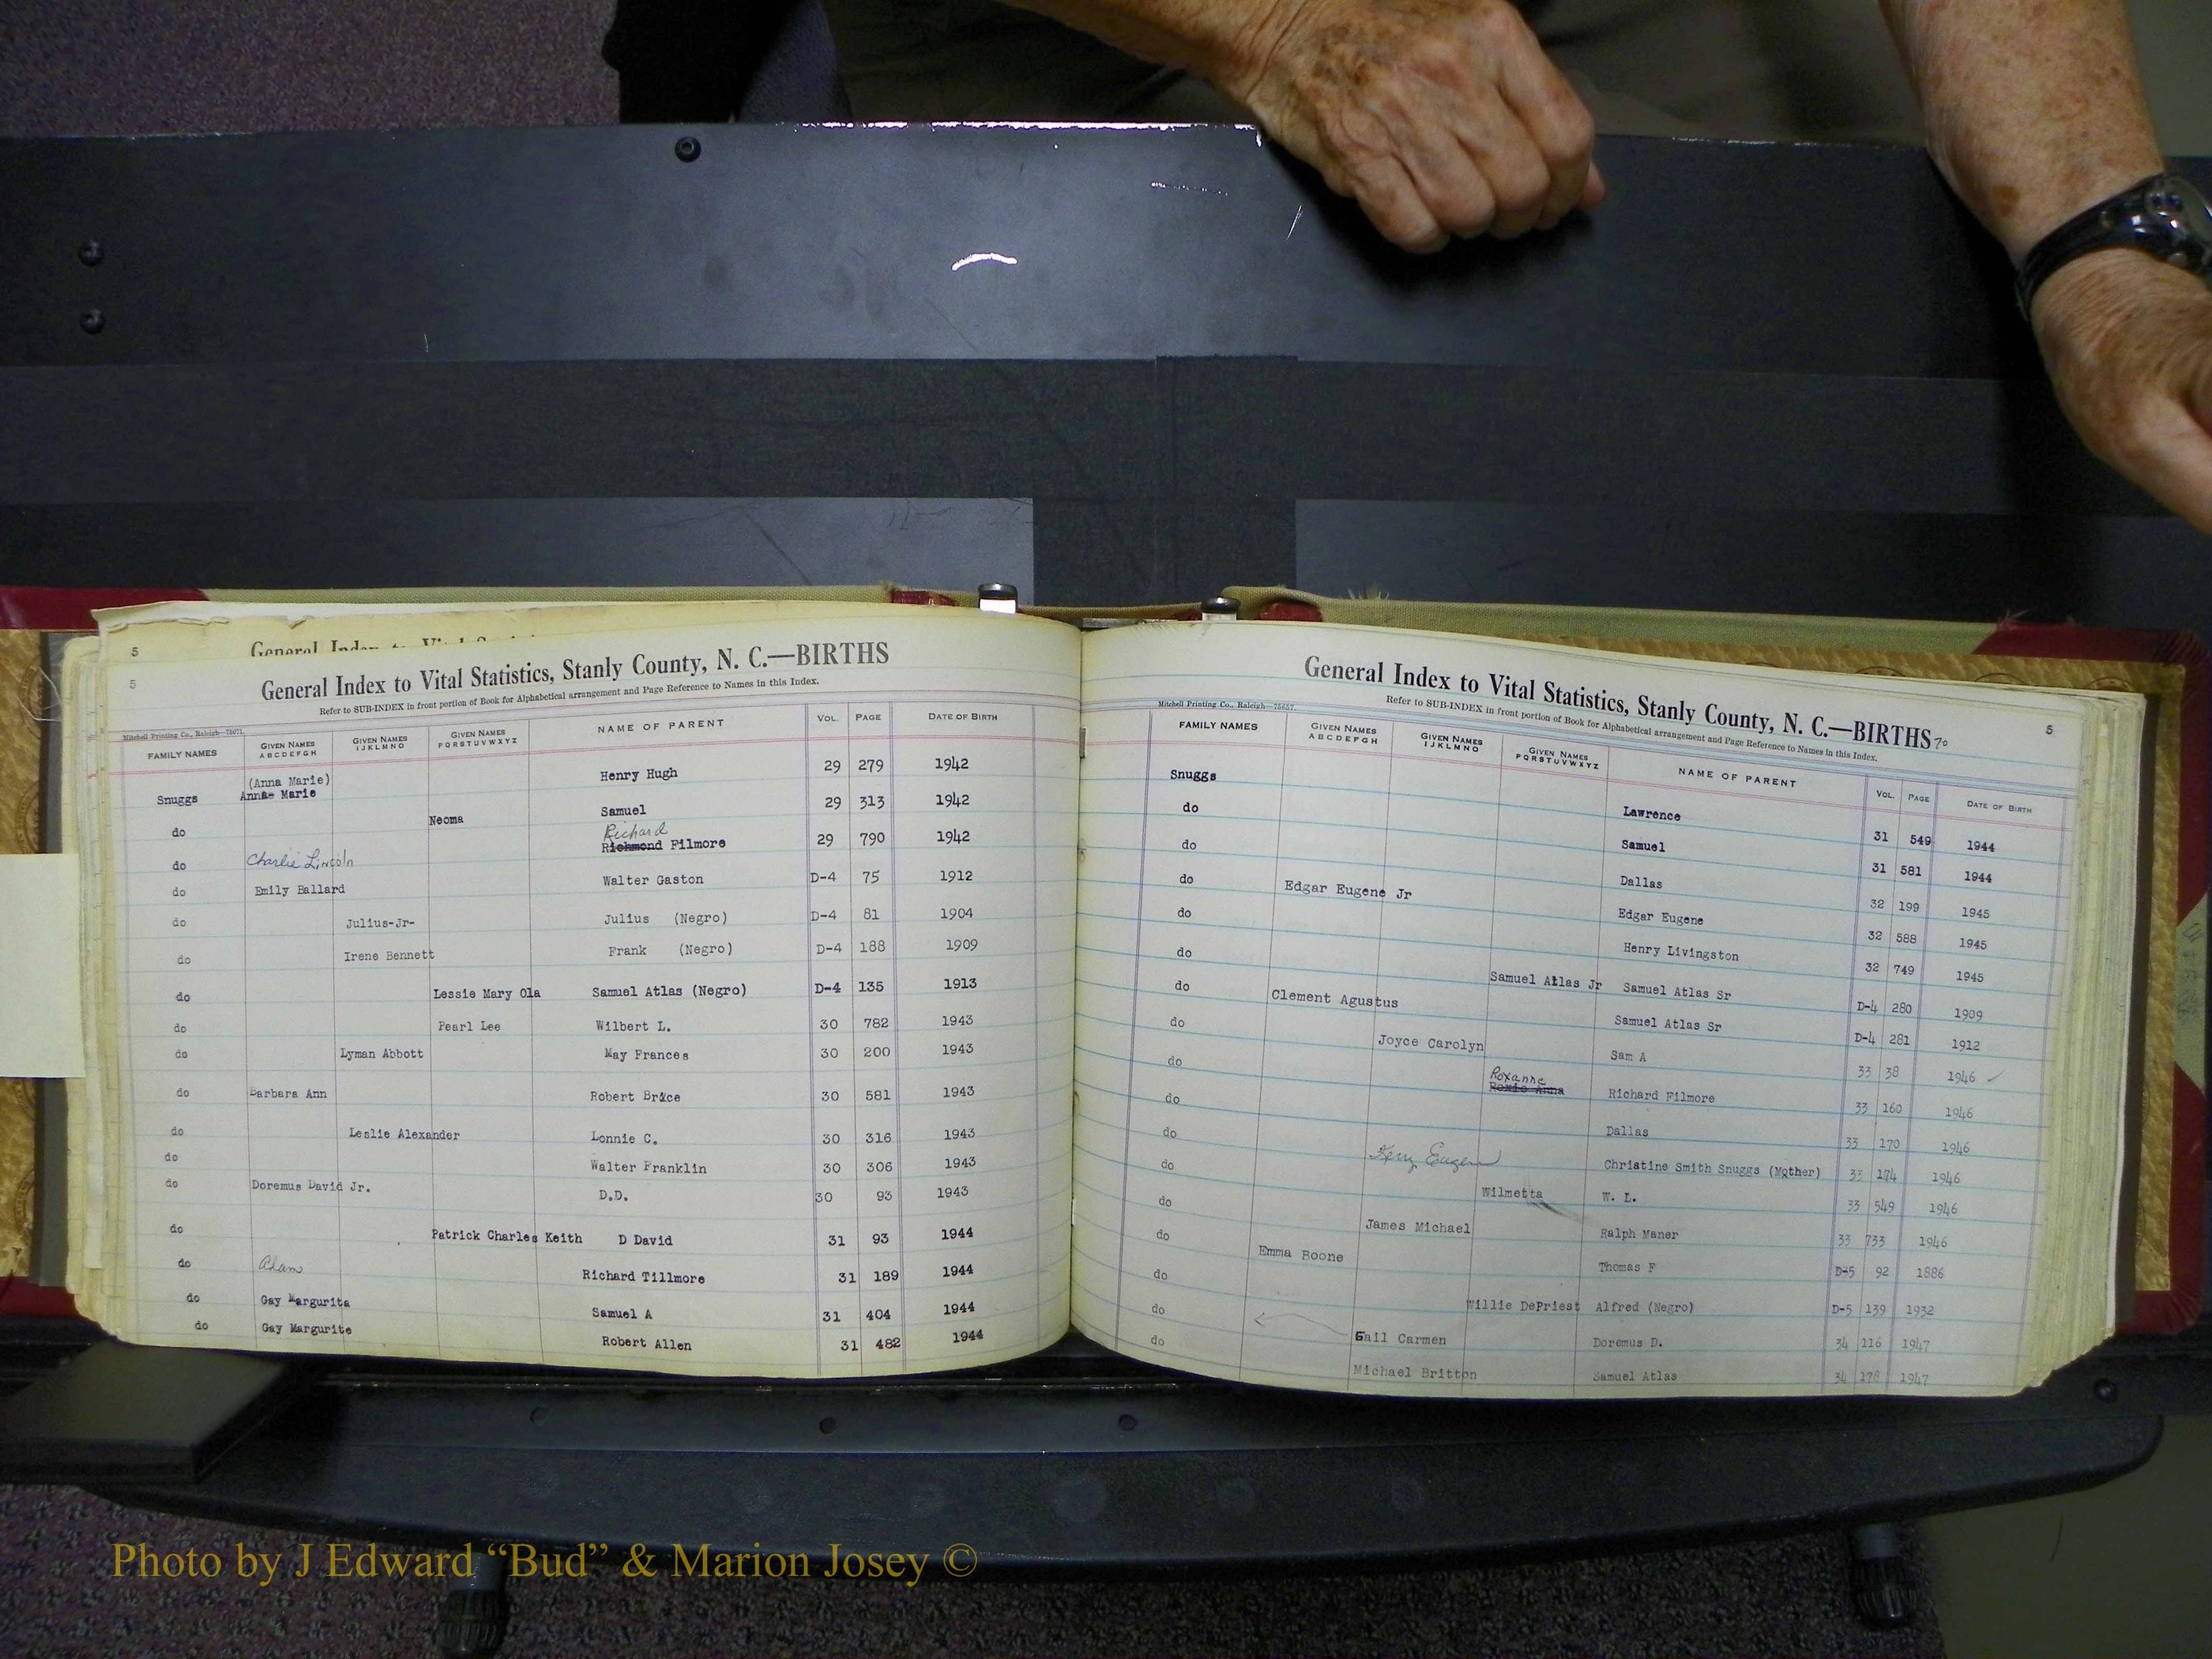 5 General Index to Vital Statistics
5
General Index to Vital Statistics, Stanly County, N. C.—BIRTHS
Refer to SUB-INDEX in front portion of Book for Alphabetical arrangement and Page Reference to Names in this Index.
Mitchell Printing Co., Raleigh—75071.
FAMILY NAMES GIVEN NAMES ABCDEFGH GIVEN NAMES IJKLMNO GIVEN NAMES PQRSTUVWXYZ NAME OF PARENT VOL. PAGE DATE OF BIRTH
(Anna Marie)
Snuggs Anna- Marie Henry Hugh 29 279 1942
do Neoma Samuel 29 313 1942
Richard
do Charlie Lincoln Richmond Filmore 29 790 1942
do Emily Ballard Walter Gaston D-4 75 1912
do Julius-Jr- Julius (Negro) D-4 81 1904
do Irene Bennett Frank (Negro) D-4 188 1909
do Lessie Mary Ola Samuel Atlas (Negro) D-4 135 1913
do Pearl Lee Wilbert L. 30 782 1943
do Lyman Abbott May Frances 30 200 1943
do Barbara Ann Robert 30 581 1943
do Leslie Alexander Lonnie C. 30 316 1943
do Walter Franklin 30 306 1943
do Doremus David Jr. D.D. 30 93 1943
do Patrick Charles Keith D David 31 93 1944
do Adam Richard Tillmore 31 189 1944
do Gay Margurita Samuel A 31 404 1944
do Gay Margurite Robert Allen 31 482 1944
General Index to Vital Statistics, Stanly County, N. C.—BIRTHS 70 5
Refer to SUB-INDEX in front portion of Book for Alphabetical arrangement and Page Reference to Names in this Index.
Mitchell Printing Co., Raleigh—75657.
FAMILY NAMES GIVEN NAMES ABCDEFGH GIVEN NAMES IJKLMNO GIVEN NAMES PQRSTUVWXYZ NAME OF PARENT VOL. PAGE DATE OF BIRTH
Snuggs Lawrence 31 549 1944
do Samuel 31 581 1944
do Dallas 32 199 1945
do Edgar Eugene Jr Edgar Eugene 32 588 1945
do Henry Livingston 32 749 1945
do Samuel Atlas Jr Samuel Atlas Sr D-4 280 1909
do Clement Agustus Samuel Atlas Sr D-4 281 1912
do Joyce Carolyn Sam A 33 38 1946 ✓
Roxanne
do Roxie Anna Richard Filmore 33 160 1946
do Dallas 33 170 1946
do Kerry Eugene Christine Smith Snuggs (Mother) 33 174 1946
do Wilmetta W. L. 33 549 1946
do James Michael Ralph Maner 33 733 1946
do Emma Boone Thomas F D-5 92 1886
do Willie DePriest Alfred (Negro) D-5 139 1932
do Gail Carmen Doremus D. 34 116 1947
do Michael Britton Samuel Atlas 34 178 1947
Photo by J Edward “Bud” & Marion Josey ©